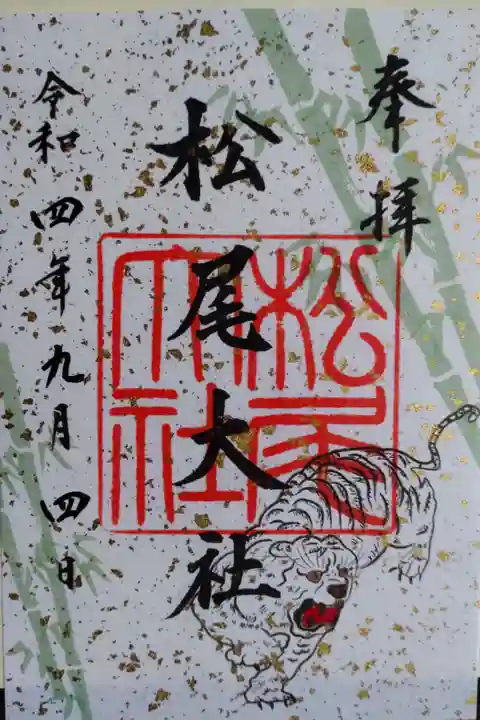 奉拝
松尾大社
松尾大社
令和四年九月四日